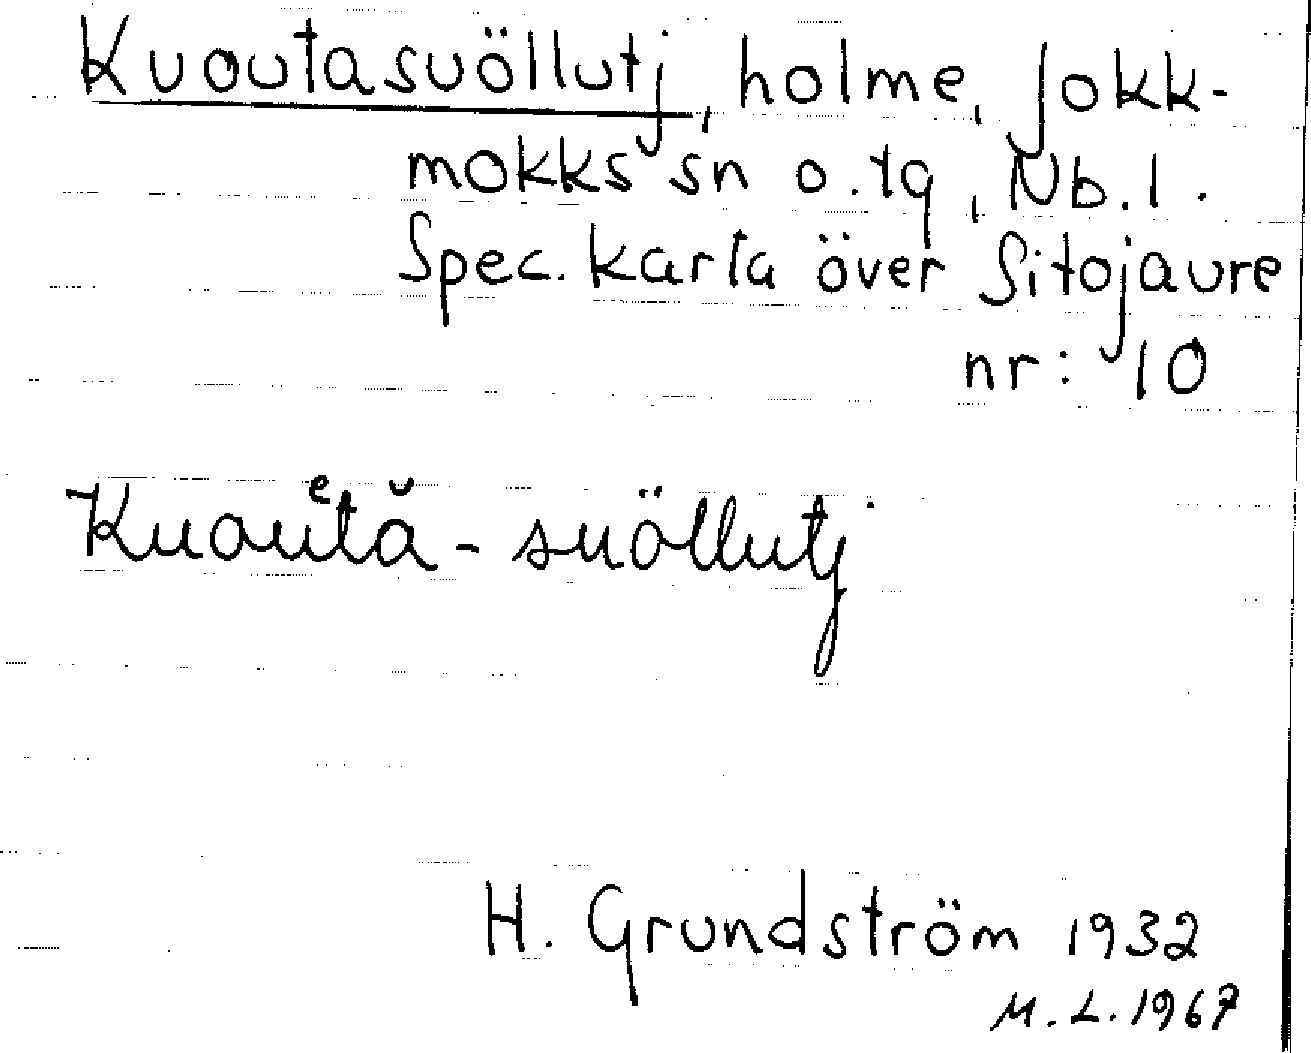 Kuoutasuöllutj, holme, Jokk-
mokks sn o. tg, Nb. l.
Spec. karta över Sitojaure
nr: 10
Kuouᵉtă-suöllutj
H. Grundström 1932
M. L. 1967